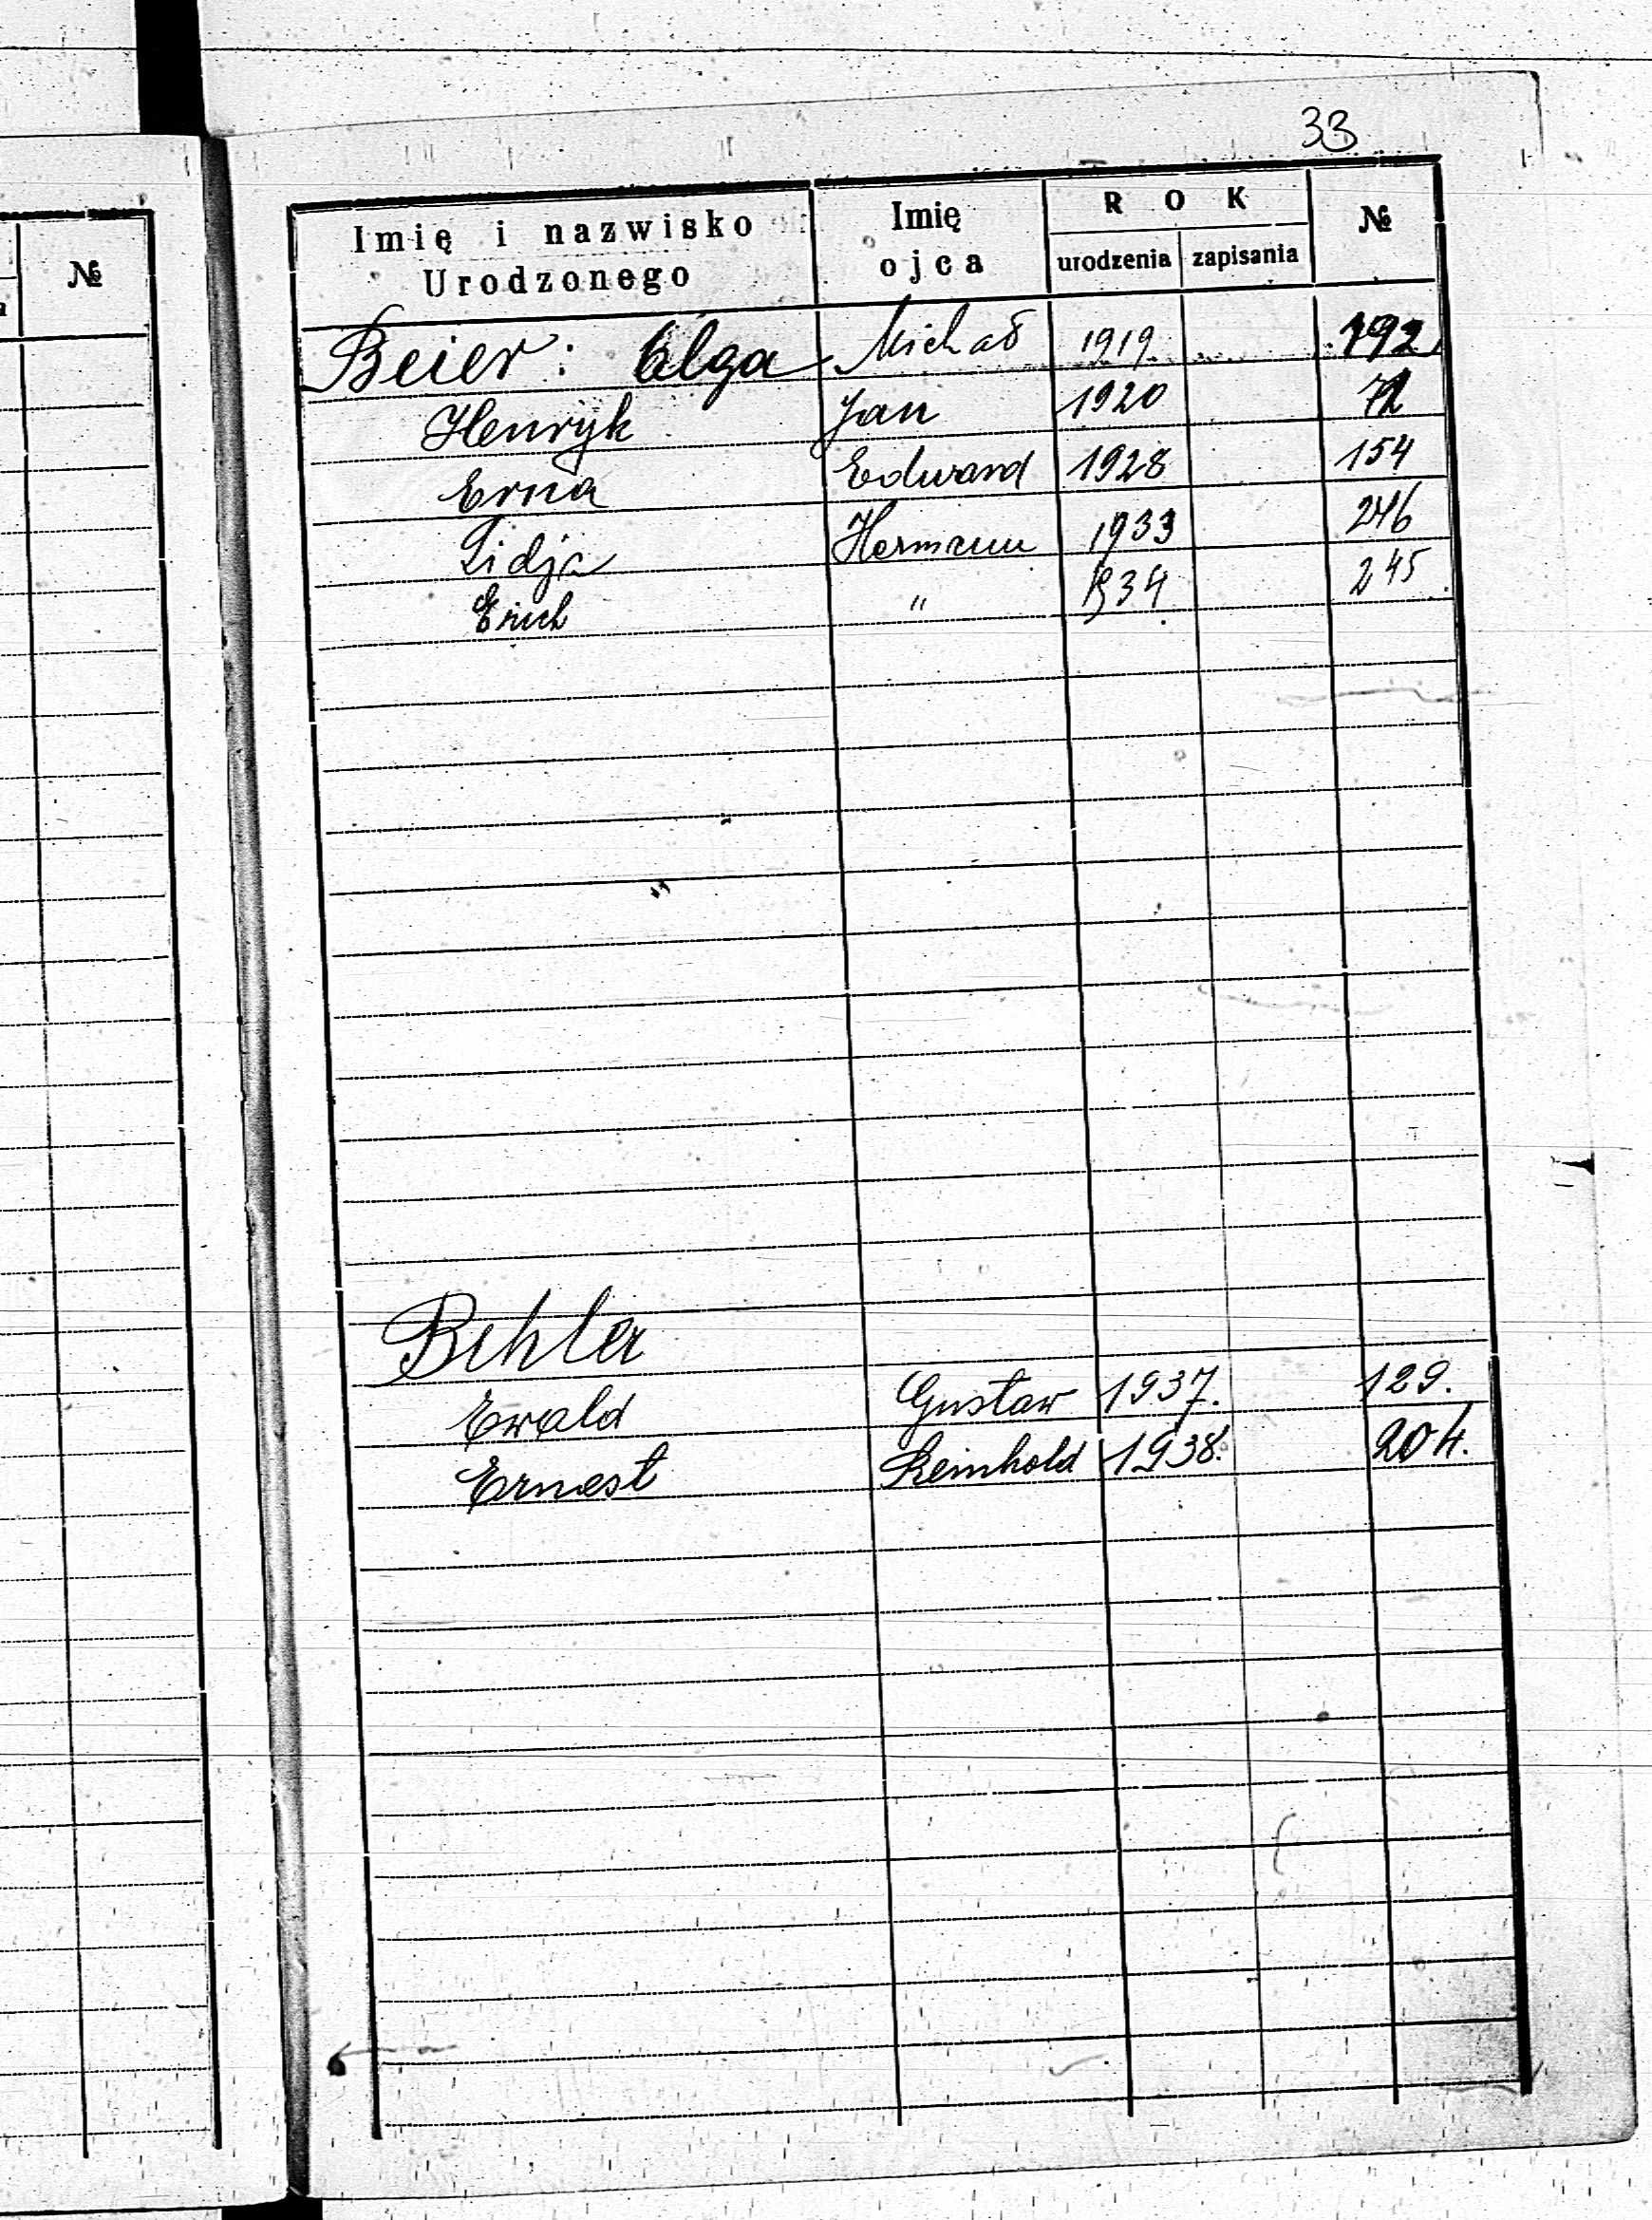 33
№
Imię i nazwisko Urodzonego
Imię ojca
ROK
urodzenia zapisania
№
Beier: Olga Michał 1919 192
Henryk Jan 1920
Erna Edward 1928 154
Lidja Hermann 1933 246
Erich " 1934 245
Behler
Ewald Gustaw 1937. 129.
Ernest Reinhold 1938. 204.